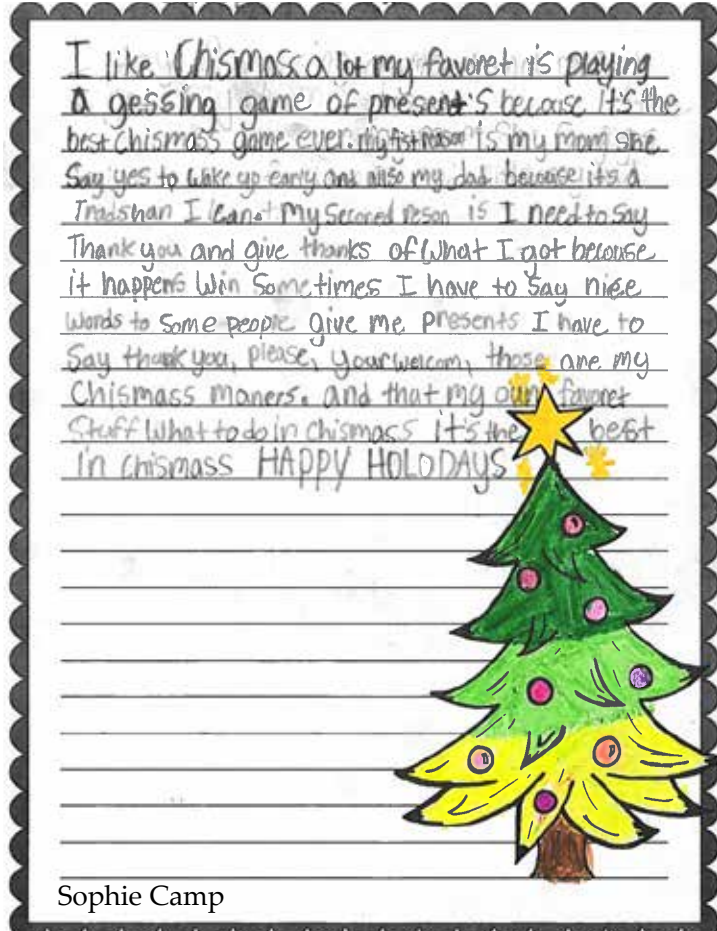 I like Chismass a lot my favoret is playing
a gessing game of present's becouse it's the
best chismass game ever. my fist reason is my mom she
Say yes to wake up early and allso my dad becouse it's a
Tradshan I can't My Secored reson is I need to Say
Thank you and give thanks of What I got becouse
it happens Win Sometimes I have to Say nice
words to Some people give me presents I have to
Say thank you, please, your welcom, those are my
Chismass maners. and that my own favoret
Stuff What to do in chismass it's the best
in chismass HAPPY HOLODAYS
Sophie Camp